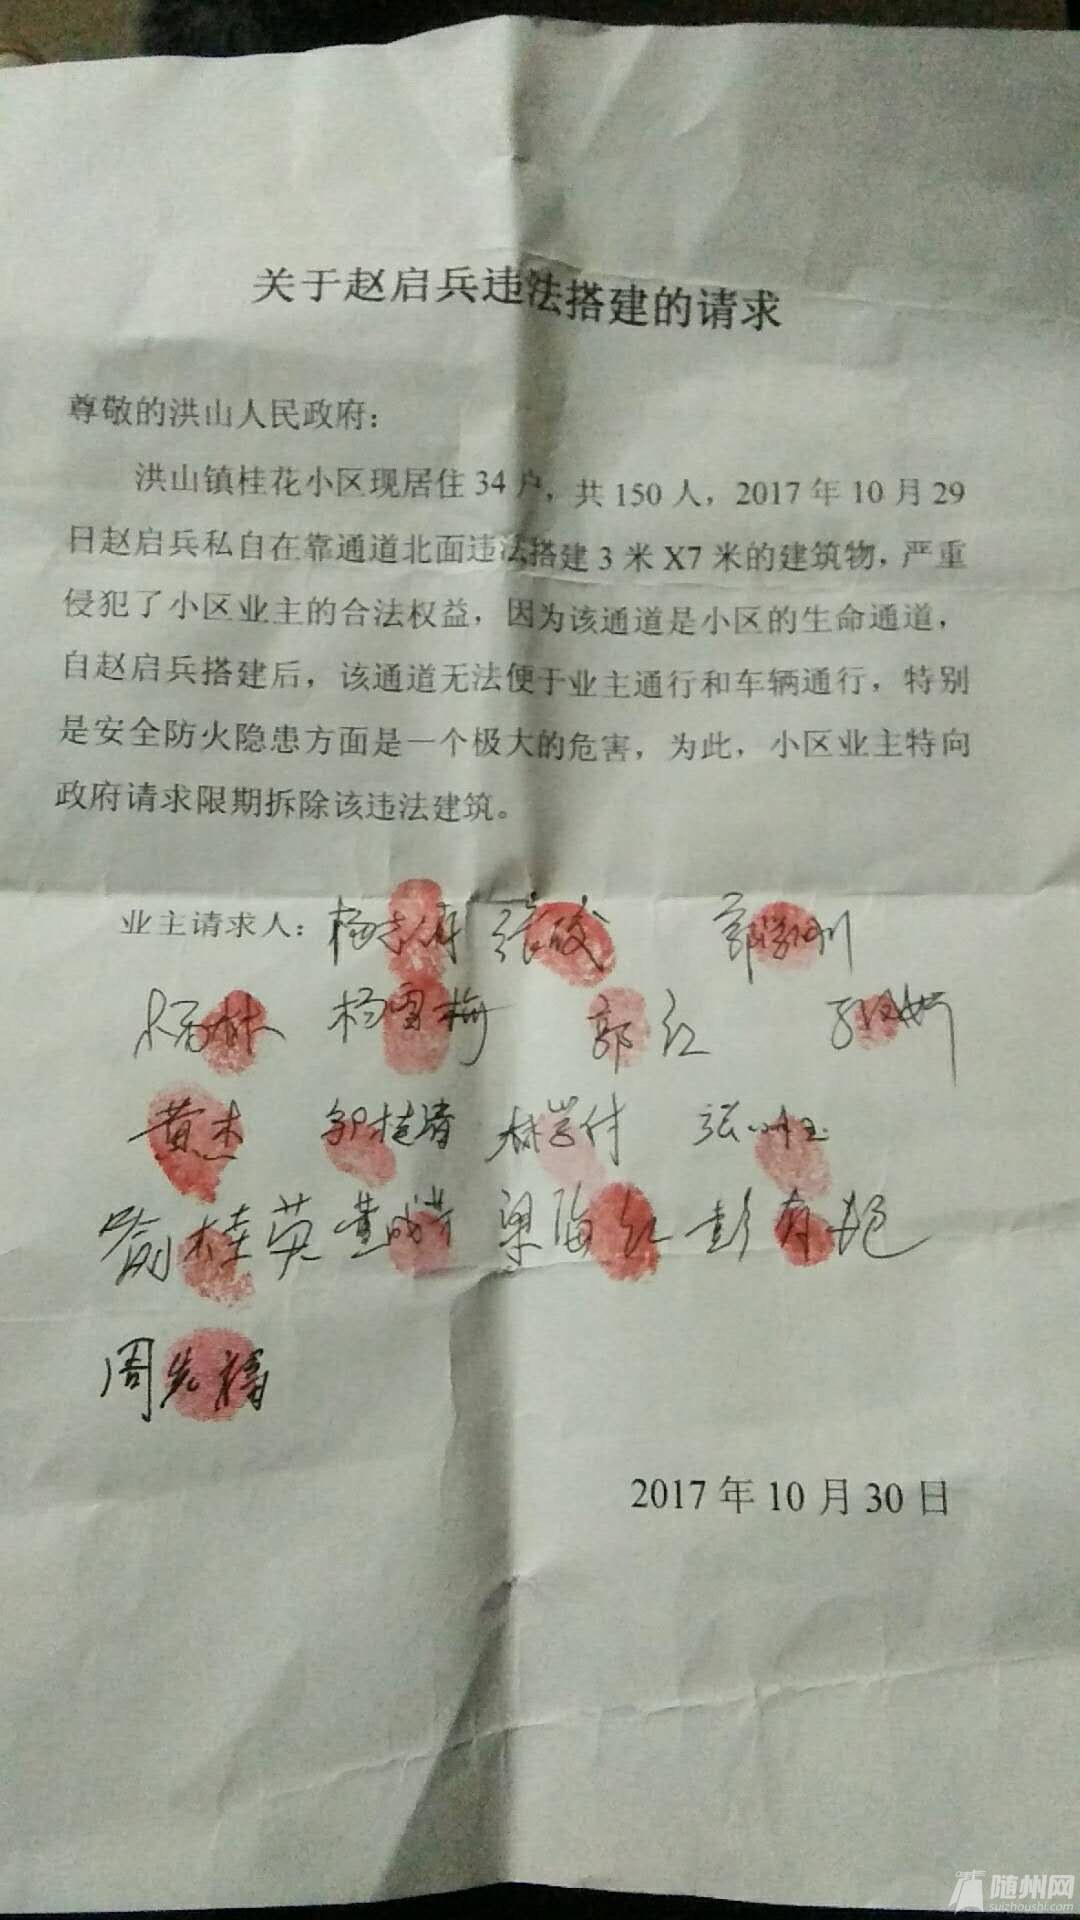 关于赵启兵违法搭建的请求
尊敬的洪山人民政府：
洪山镇桂花小区现居住34户，共150人，2017年10月29
日赵启兵私自在靠通道北面违法搭建3米X7米的建筑物，严重
侵犯了小区业主的合法权益，因为该通道是小区的生命通道，
自赵启兵搭建后，该通道无法便于业主通行和车辆通行，特别
是安全防火隐患方面是一个极大的危害，为此，小区业主特向
政府请求限期拆除该违法建筑。
业主请求人：杨志 张俊
杨林 杨雪梅 郭红
黄杰 林学付 张
喻桂英 董成芳 梁海红 彭有艳
周先
2017年10月30日
随州网
suizhoushi.com